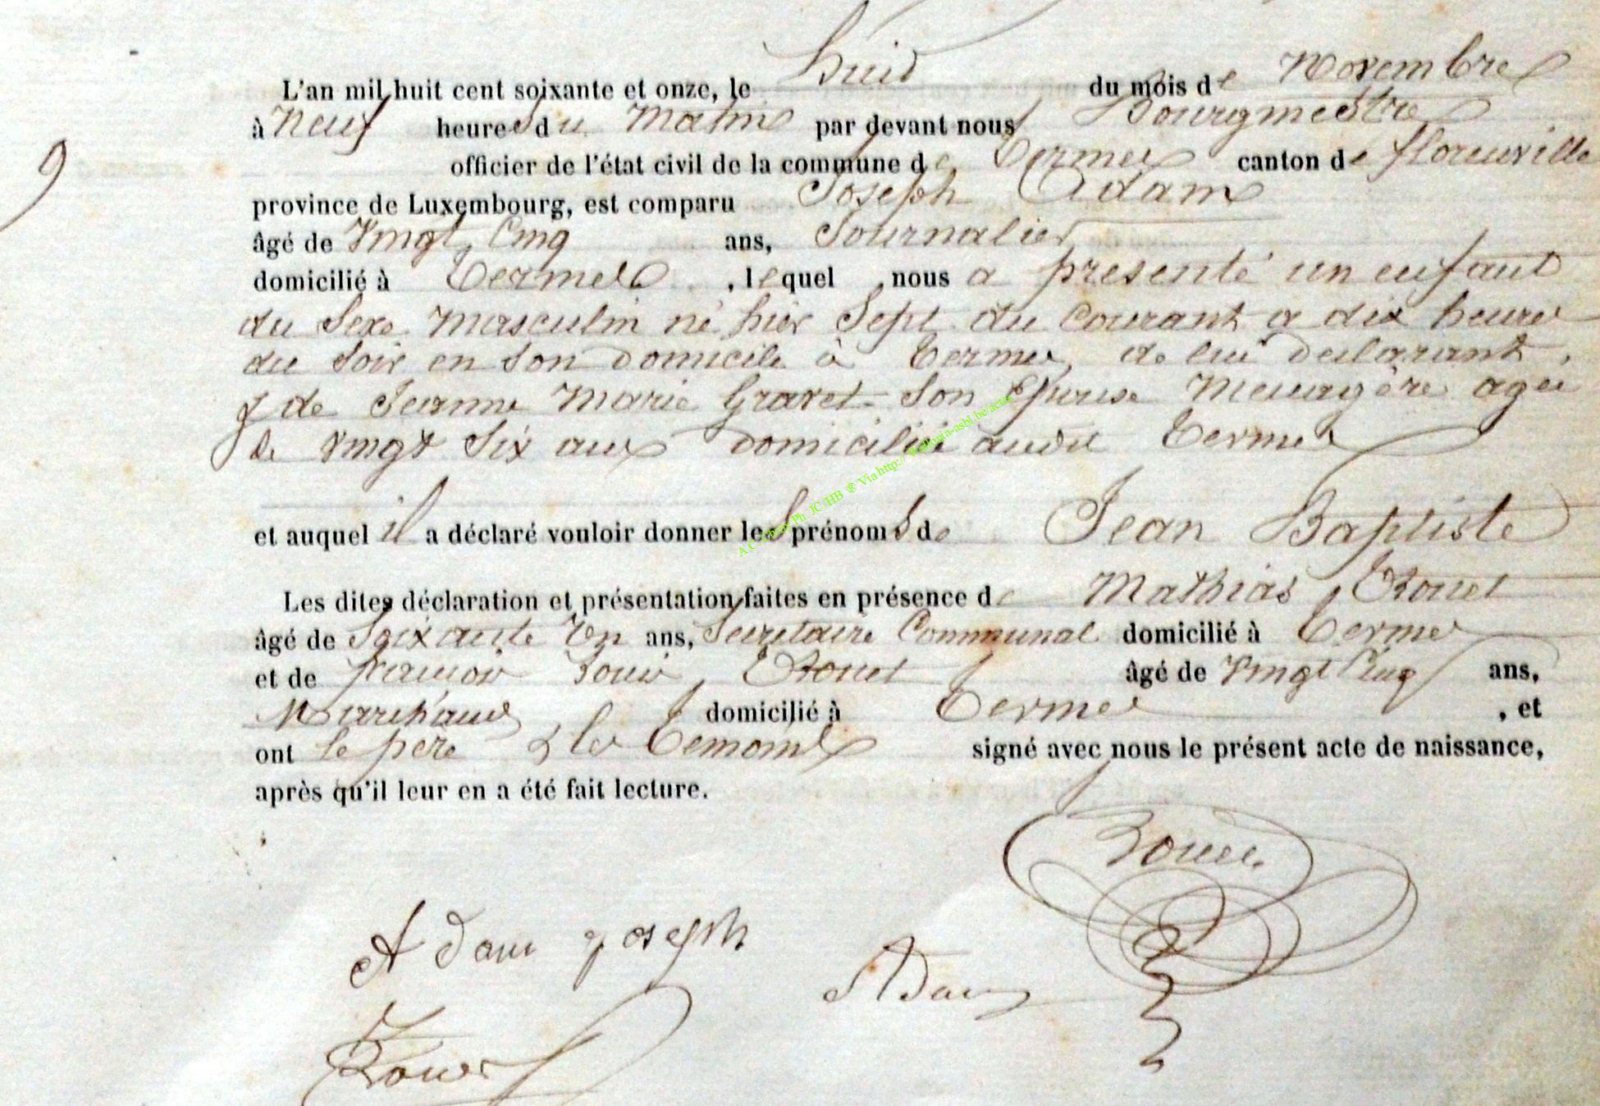 L'an mil huit cent soixante et onze, le huit du mois de Novembre
à Neuf heures du Matin par devant nous Bourgmestre
officier de l'état civil de la commune de Termes canton de florenville
9
province de Luxembourg, est comparu Joseph Adam
âgé de Vingt Cinq ans, Journalier
domicilié à Termes, lequel nous a presenté un enfant
du Sexe Masculin né hier Sept du Courant a dix heures
du Soir en Son Domicile à Termes, de lui declarant,
& de Jeanne Marie Gravet Son Epouse Menagère agée
de vingt Six ans domiciliée audit Termes
et auquel il a déclaré vouloir donner les prénoms de Jean Baptiste
Les dites déclaration et présentation faites en présence de Mathias
âgé de Soixante Un ans, Secretaire Communal domicilié à Termes
et de francois Louis âgé de Vingt Cinq ans,
Marchand domicilié à Termes, et
ont le père & les Temoins signé avec nous le présent acte de naissance,
après qu'il leur en a été fait lecture.
Adam joseph
Adam